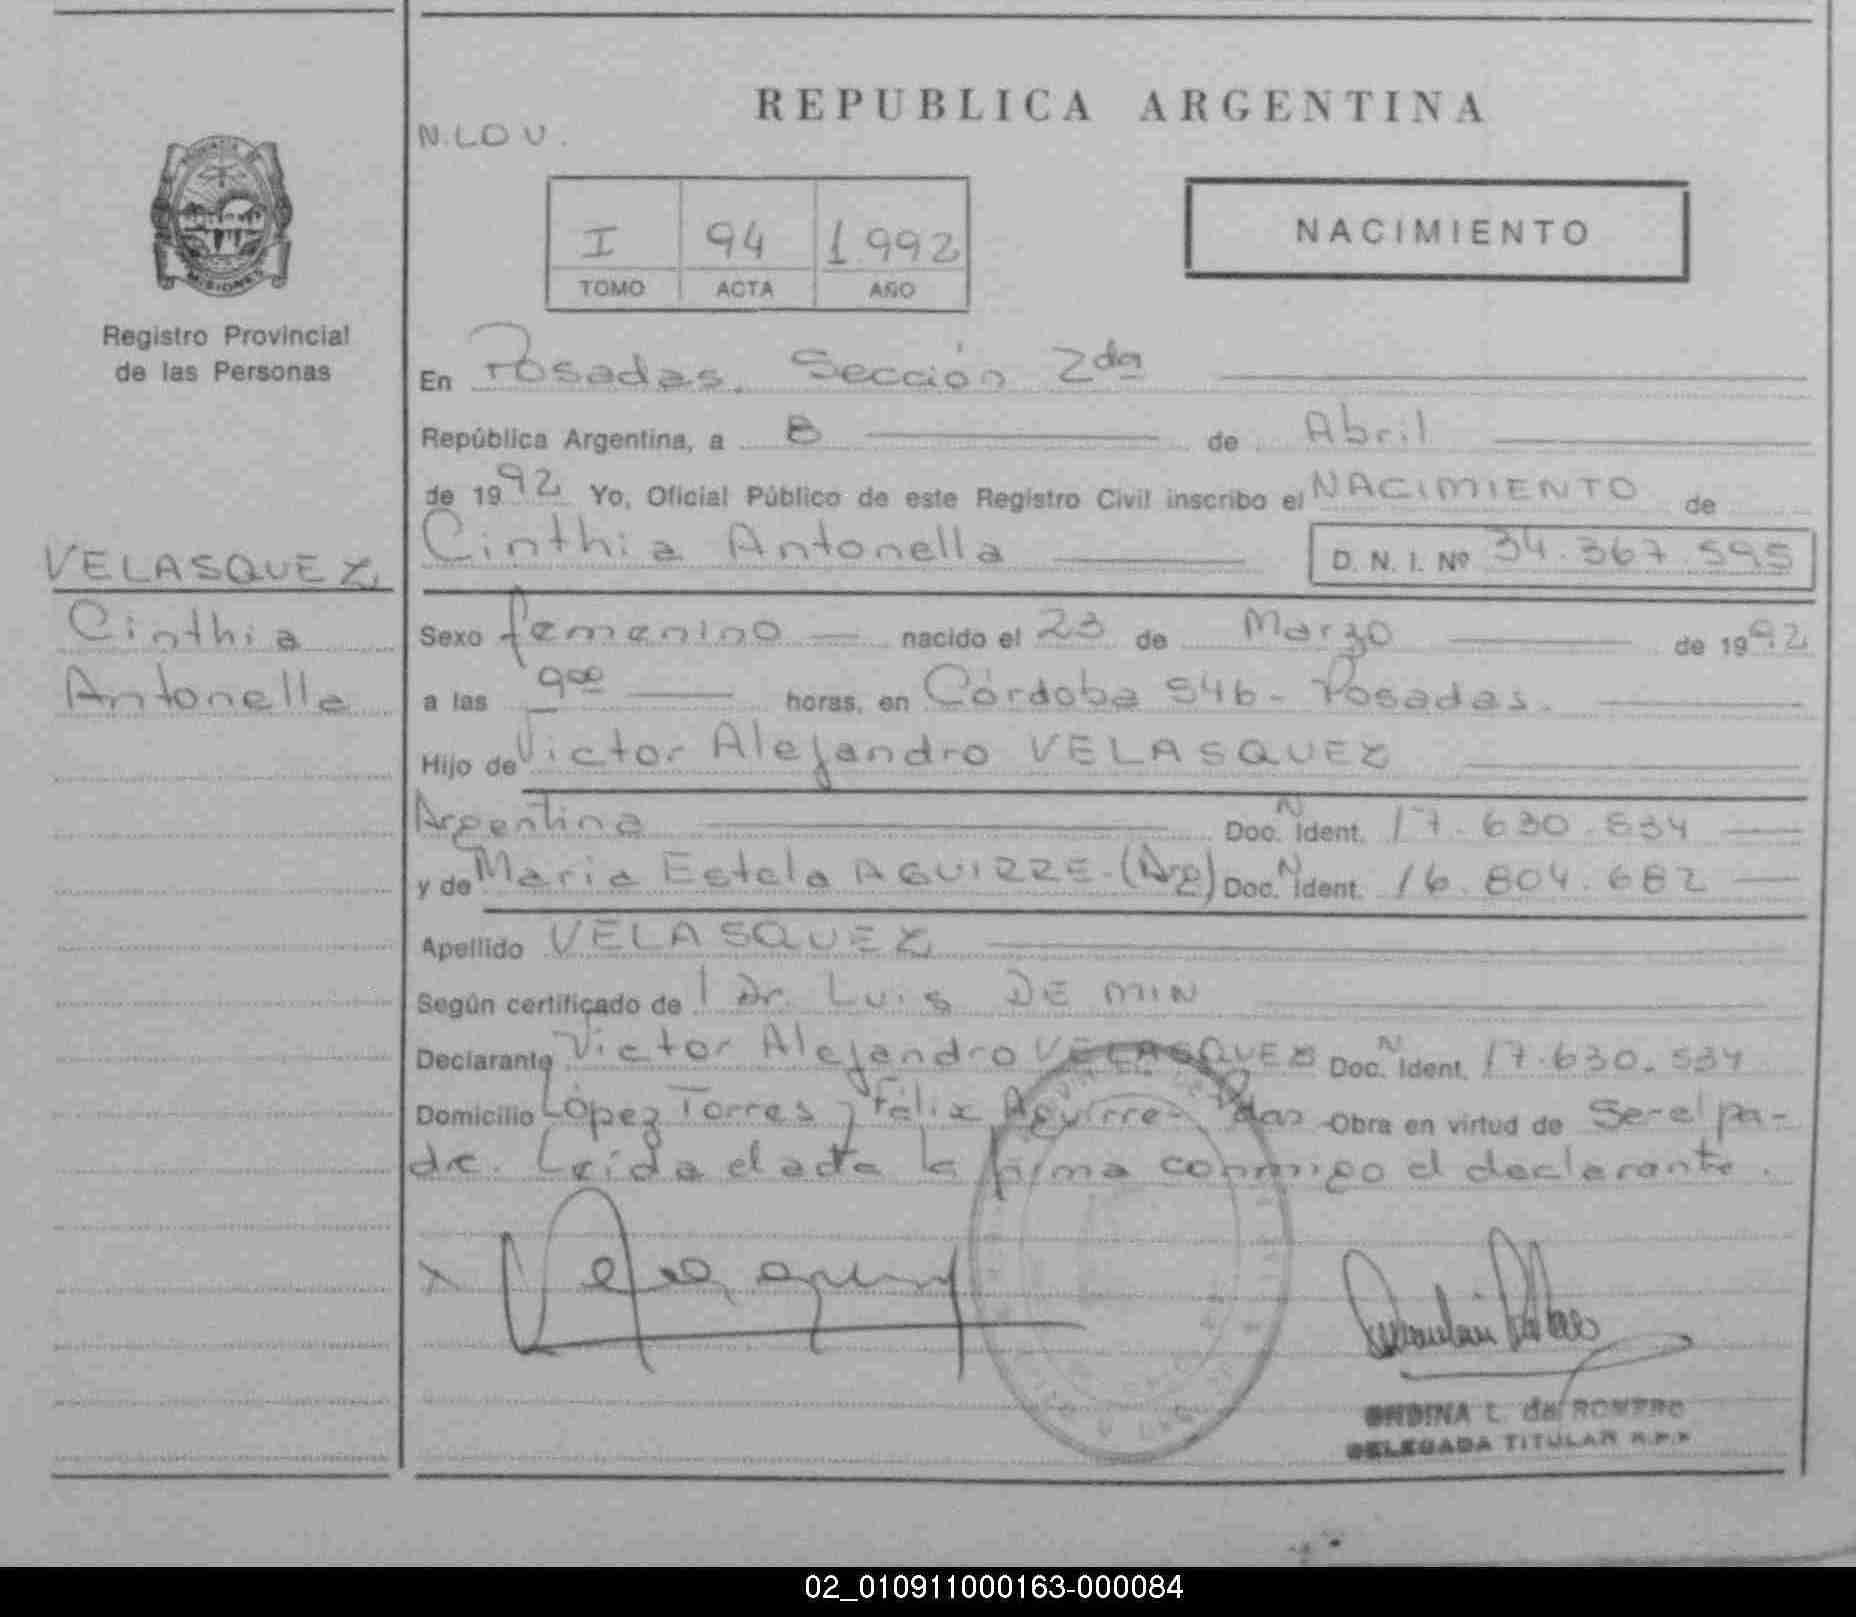 REPUBLICA ARGENTINA
N.LO V.
NACIMIENTO
I 94 1.992
TOMO ACTA AÑO
MISIONES
Registro Provincial
de las Personas
VELASQUEZ,
Cinthia
Antonella
En Posadas, Sección 2da
República Argentina, a 8 de Abril
de 1992 Yo, Oficial Público de este Registro Civil inscribo el NACIMIENTO de
Cinthia Antonella D. N. I. Nº 34.367.595
Sexo femenino nacido el 23 de Marzo de 1992
a las 9oo horas, en Córdoba 546 - Posadas.
Hijo de Victor Alejandro VELASQUEZ
Argentina Doc. N Ident. 17.630.534
y de Maria Estela AGUIRRE - (Arg) Doc. N Ident. 16.804.682
Apellido VELASQUEZ,
Según certificado de l Dr. Luis DE MIN
Declarante Victor Alejandro VELASQUEZ Doc. N Ident. 17.630.534
Domicilio López Torres y Félix Aguirre - Pdas Obra en virtud de Ser el pa-
dre. Leída el acta la firma conmigo el declarante.
x Velasquez
ONDINA L. de ROMERO
DELEGADA TITULAR R.P.P.
02_010911000163-000084